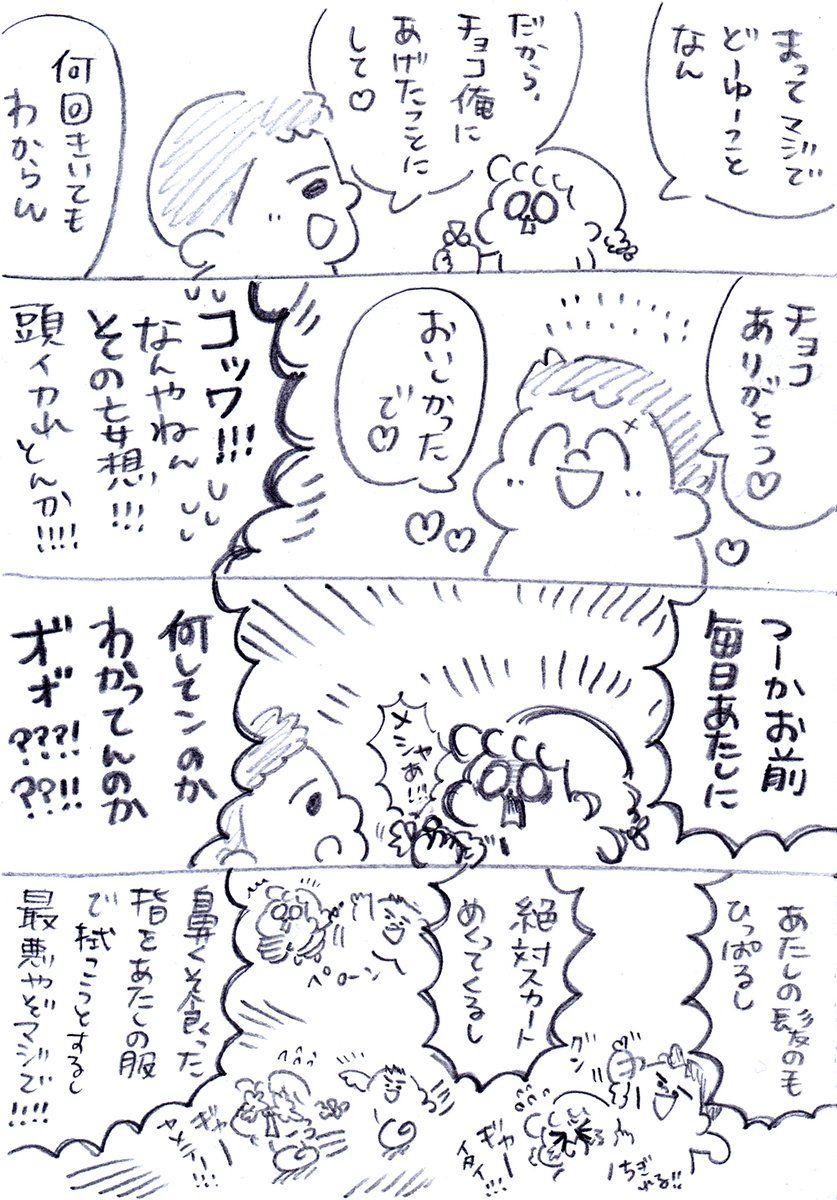 まってマジで
どーゆーこと
なん
だから、
チョコ俺に
あげたことに
して♡
何回きいても
わからん
チョコ
ありがとう♡
おいしかった
で♡
コッワ!!!
なんやねん
その妄想!!!
頭イカれとんか!!!!
つーかお前
毎日あたしに
メシャあ!!!
何してンのか
わかってんのか
オォ???!
??!!
あたしの髪のモ
ひっぱるし
グン
ギャー
イタイー!!!
ちぎ
れる!!
絶対スカート
めくってくるし
ペローン
ギャー
ヤメイー!!!
鼻くそ食った
指をあたしの服
で拭こうとするし
最悪やぞマジで!!!!